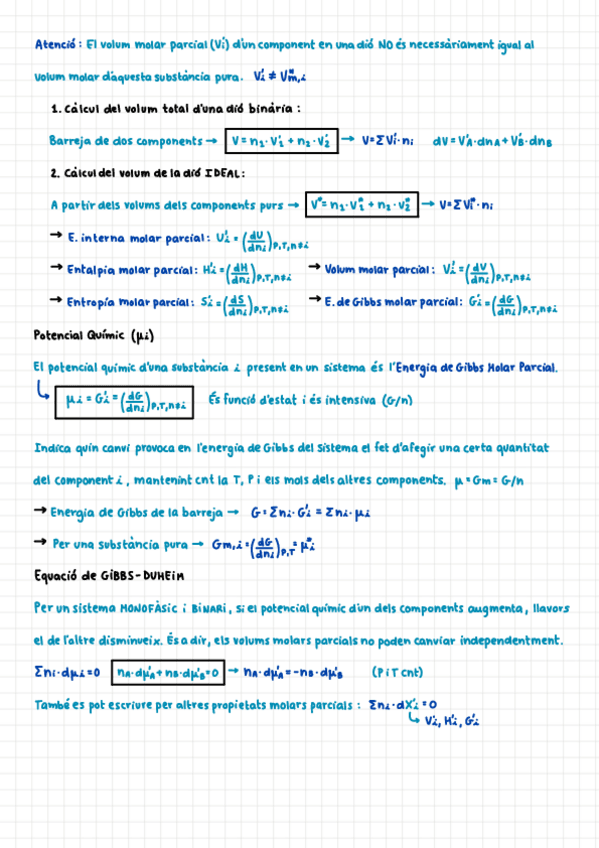 Atenció: El volum molar parcial (Vi') d'un component en una dió NO és necessàriament igual al
volum molar d'aquesta substància pura. Vi' ≠ V*m,i
1. Càlcul del volum total d'una dió binària:
Barreja de dos components → V = n1·V1' + n2·V2' → V = ΣVi'·ni dV = VA'·dnA + VB'·dnB
2. Càlcul del volum de la dió IDEAL:
A partir dels volums dels components purs → V* = n1·V1* + n2·V2* → V = ΣVi*·ni
→ E. interna molar parcial: Ui' = (dU/dni)P,T,n≠i
→ Entalpia molar parcial: Hi' = (dH/dni)P,T,n≠i → Volum molar parcial: Vi' = (dV/dni)P,T,n≠i
→ Entropia molar parcial: Si' = (dS/dni)P,T,n≠i → E. de Gibbs molar parcial: Gi' = (dG/dni)P,T,n≠i
Potencial Químic (μi)
El potencial químic d'una substància i present en un sistema és l'Energia de Gibbs Molar Parcial.
μi = Gi' = (dG/dni)P,T,n≠i És funció d'estat i és intensiva (G/n)
Indica quin canvi provoca en l'energia de Gibbs del sistema el fet d'afegir una certa quantitat
del component i, mantenint cnt la T, P i els mols dels altres components. μ = Gm = G/n
→ Energia de Gibbs de la barreja → G = Σni·Gi' = Σni·μi
→ Per una substància pura → Gm,i = (dG/dni)P,T = μi*
Equació de GIBBS-DUHEIM
Per un sistema MONOFÀSIC i BINARI, si el potencial químic d'un dels components augmenta, llavors
el de l'altre disminueix. És a dir, els volums molars parcials no poden canviar independentment.
Σni·dμi = 0 nA·dμA' + nB·dμB' = 0 → nA·dμA' = -nB·dμB' (P i T cnt)
També es pot escriure per altres propietats molars parcials: Σni·dXi' = 0
Vi', Hi', Gi'